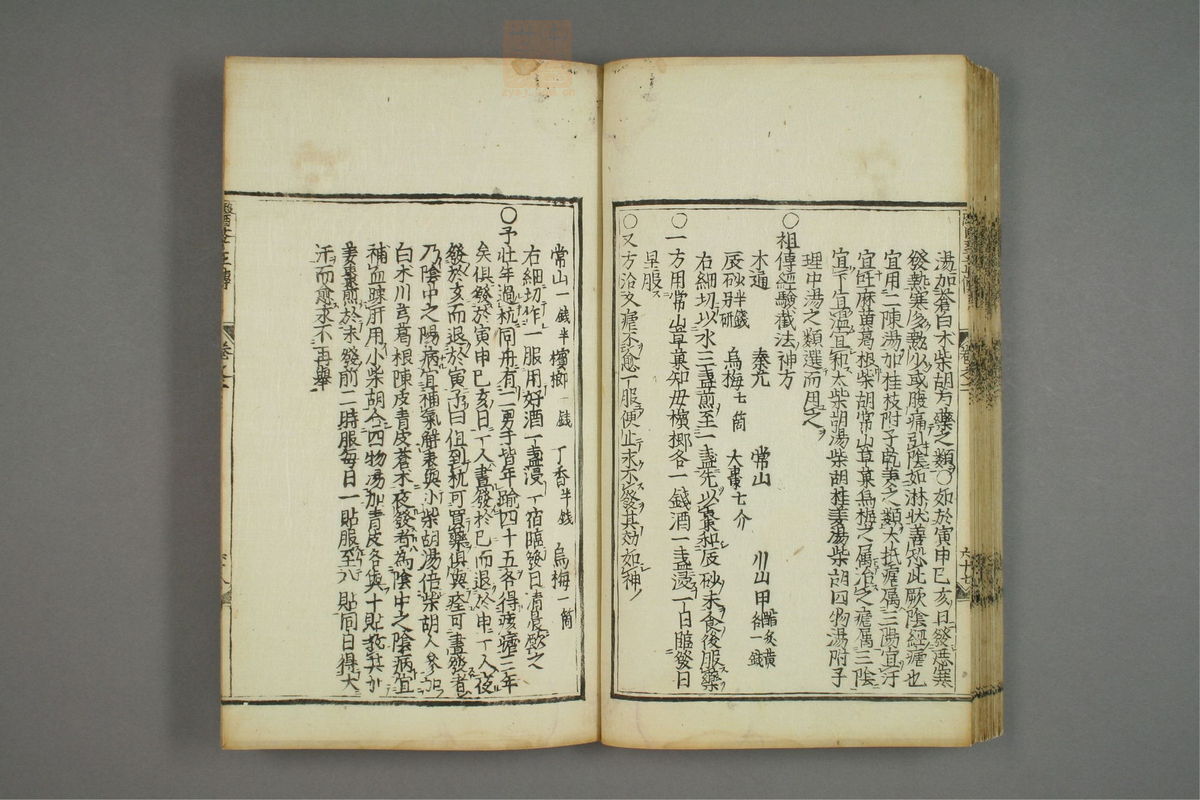 湯加蒼白朮柴胡方藥之類○如於寅申巳亥日發惡寒
發熱寒多熱少或腹痛引陰如淋狀善恐此厥陰經瘧也
宜用二陳湯加桂枝附子乾姜之類大抵瘧属三陽宜汗
宜吐麻黄葛根柴胡常山草菓烏梅之属治之瘧属三陰
宜下宜温宜和大柴胡湯柴胡桂姜湯柴胡四物湯附子
理中湯之類選而用之
○祖傳經驗截法神方
木通 秦艽 常山 川山甲 各一錢
辰砂半錢 别研 烏梅七箇 大棗七介
右細切以水三盞煎至一盞先以棗和辰砂末食後服藥
○一方用常山草菓知母檳榔各一錢酒一盞浸一日臨發日
早服
○又方治久瘧不愈一服便止永不發其効如神
常山一錢半 檳榔一錢 丁香半錢 烏梅一箇
右細切作一服用好酒一盞浸一宿臨發日清晨飲之
○予壮年過杭同舟有二男子皆年踰四十五各得痎瘧三年
矣俱發於寅申巳亥日一人晝發於巳而退於申一人夜
發於亥而退於寅予曰但到杭可買藥俱與痊可晝發者
乃陰中之陽病宜補氣解表與小柴胡湯倍柴胡人參加
白朮川芎葛根陳皮青皮蒼朮夜發者為陰中之陰病宜
補血疎肝用小柴胡合四物湯加青皮各與十貼教其加
姜棗煎於未發前二時服每日一貼服至八貼同日得大
汗而愈永不再舉